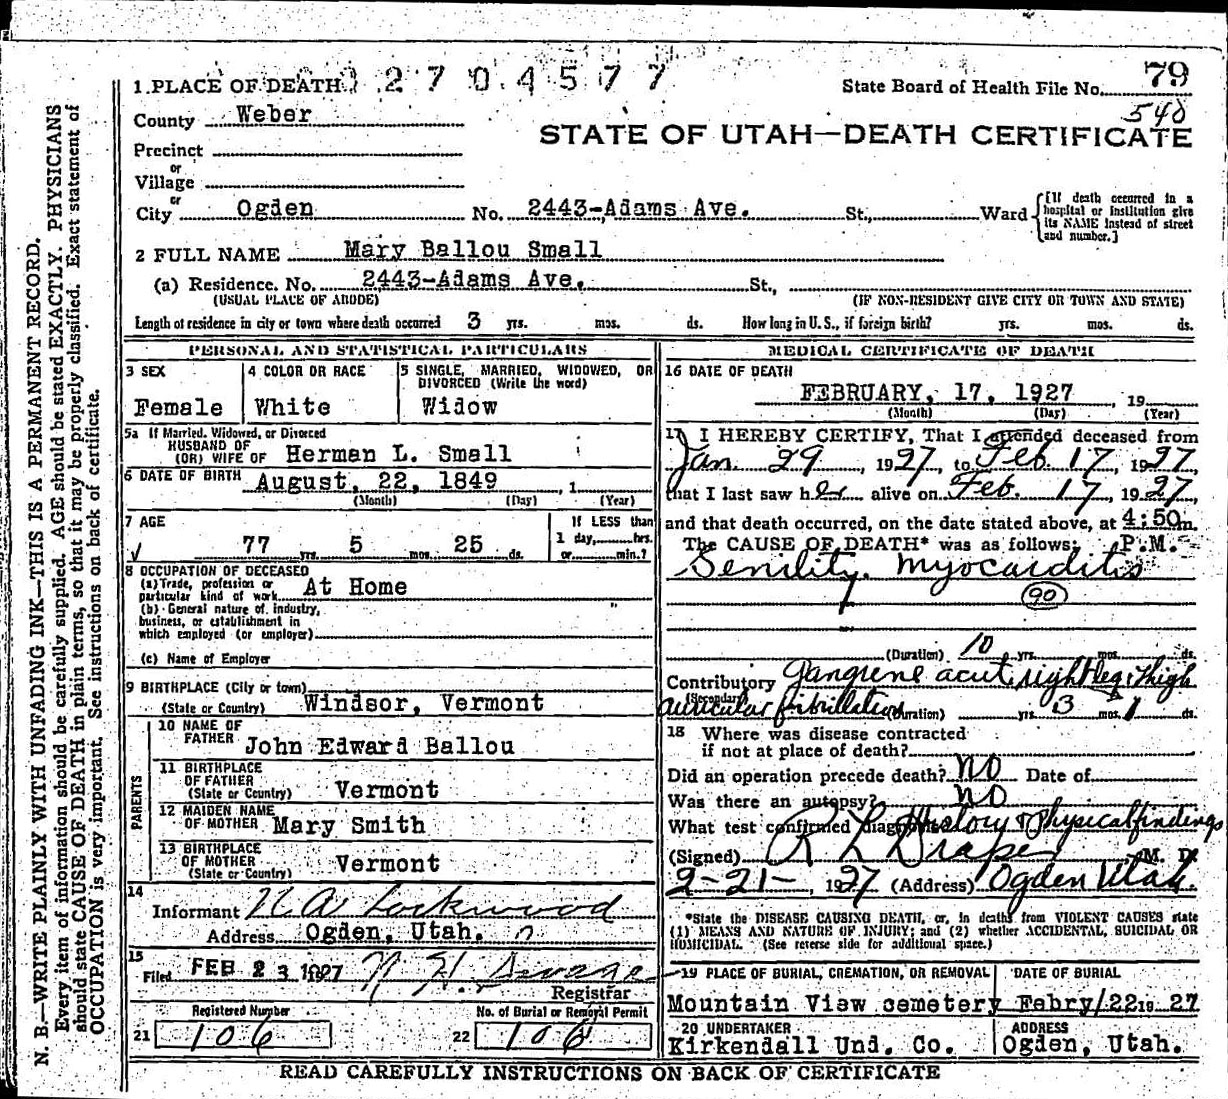 1 PLACE OF DEATH 2 7 0 4 5 7 7
State Board of Health File No. 79
540
County Weber
STATE OF UTAH—DEATH CERTIFICATE
Precinct
or
Village
or
City Ogden No. 2443-Adams Ave. St., Ward [If death occurred in a hospital or institution give its NAME instead of street and number.]
2 FULL NAME Mary Ballou Small
(a) Residence. No. 2443-Adams Ave. St.,
(USUAL PLACE OF ABODE) (IF NON-RESIDENT GIVE CITY OR TOWN AND STATE)
Length of residence in city or town where death occurred 3 yrs. mos. ds. How long in U. S., if foreign birth? yrs. mos. ds.
PERSONAL AND STATISTICAL PARTICULARS
3 SEX
Female
4 COLOR OR RACE
White
5 SINGLE, MARRIED, WIDOWED, OR
DIVORCED (Write the word)
Widow
5a If Married, Widowed, or Divorced
HUSBAND OF
(OR) WIFE OF Herman L. Small
6 DATE OF BIRTH August, 22, 1849 , 1
(Month) (Day) (Year)
7 AGE
77 yrs. 5 mos. 25 ds.
If LESS than
1 day, hrs.
or min.?
8 OCCUPATION OF DECEASED
(a) Trade, profession or
particular kind of work At Home
(b) General nature of industry,
business, or establishment in
which employed (or employer)
(c) Name of Employer
9 BIRTHPLACE (City or town)
(State or Country) Windsor, Vermont
PARENTS
10 NAME OF
FATHER John Edward Ballou
11 BIRTHPLACE
OF FATHER
(State or Country) Vermont
12 MAIDEN NAME
OF MOTHER Mary Smith
13 BIRTHPLACE
OF MOTHER
(State or Country) Vermont
14
Informant N. A. Lockwood
Address Ogden, Utah.
15
Filed FEB 23 1927
Registrar
Registered Number
21 106
No. of Burial or Removal Permit
22 106
MEDICAL CERTIFICATE OF DEATH
16 DATE OF DEATH
FEBRUARY, 17, 1927 , 19
(Month) (Day) (Year)
17 I HEREBY CERTIFY, That I attended deceased from
Jan. 29, 1927, to Feb. 17, 1927,
that I last saw her alive on Feb. 17, 1927,
and that death occurred, on the date stated above, at 4:50 m.
The CAUSE OF DEATH* was as follows: P.M.
Senility. Myocarditis
90
(Duration) 10 yrs. mos. ds.
Contributory Gangrene acute right leg & thigh
(Secondary)
auricular fibrillation (Duration) yrs. 3 mos. 1 ds.
18 Where was disease contracted
if not at place of death?
Did an operation precede death? No Date of
Was there an autopsy? no
What test confirmed diagnosis? History & Physical findings
(Signed) R L Draper M. D.
2-21-, 1927 (Address) Ogden Utah.
*State the DISEASE CAUSING DEATH, or, in deaths from VIOLENT CAUSES state
(1) MEANS AND NATURE OF INJURY; and (2) whether ACCIDENTAL, SUICIDAL OR
HOMICIDAL. (See reverse side for additional space.)
19 PLACE OF BURIAL, CREMATION, OR REMOVAL
Mountain View cemetery
DATE OF BURIAL
Febry/22 19 27
20 UNDERTAKER
Kirkendall Und. Co.
ADDRESS
Ogden, Utah.
READ CAREFULLY INSTRUCTIONS ON BACK OF CERTIFICATE
N. B.—WRITE PLAINLY WITH UNFADING INK—THIS IS A PERMANENT RECORD.
Every item of information should be carefully supplied. AGE should be stated EXACTLY. PHYSICIANS
should state CAUSE OF DEATH in plain terms, so that it may be properly classified. Exact statement of
OCCUPATION is very important. See instructions on back of certificate.